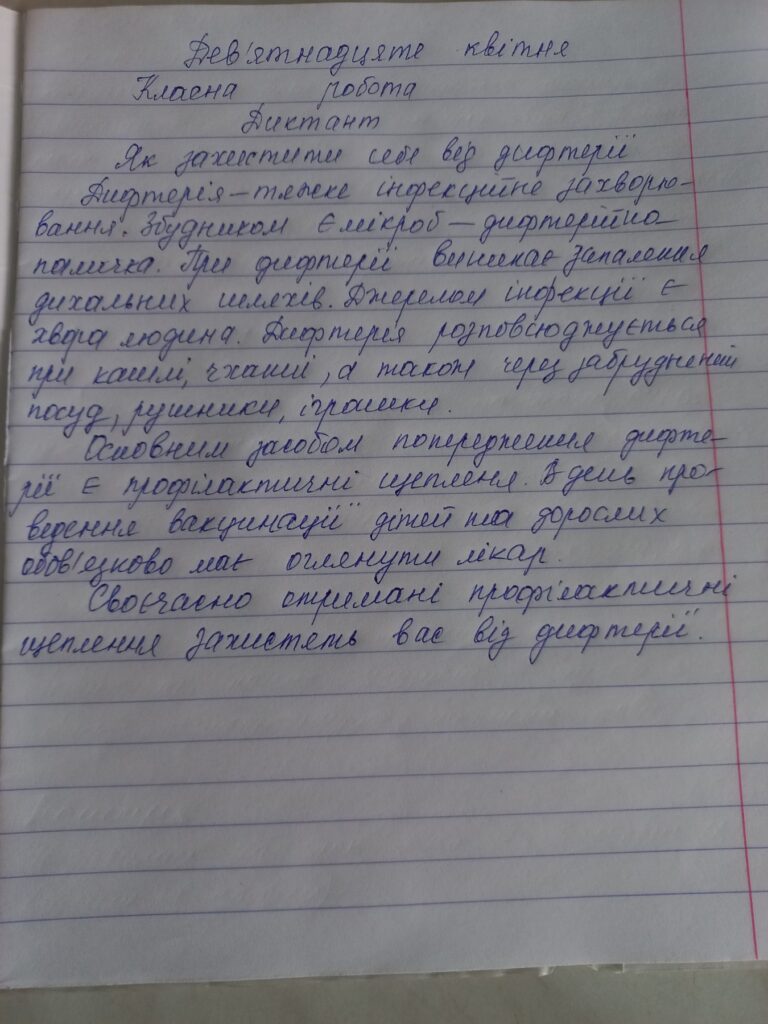 Дев'ятнадцяте квітня
Класна робота
Диктант
Як захистити себе від дифтерії
Дифтерія – тяжке інфекційне захворю-
вання. Збудником є мікроб – дифтерійна
паличка. При дифтерії виникає запалення
дихальних шляхів. Джерелом інфекції є
хвора людина. Дифтерія розповсюджується
при кашлі, чханні, а також через забруднений
посуд, рушники, іграшки.
Основним засобом попередження дифте-
рії є профілактичні щепленя. В день про-
ведення вакцинації дітей та дорослих
обов'язково має оглянути лікар.
Своєчасно отримані профілактичні
щеплення захистять вас від дифтерії.